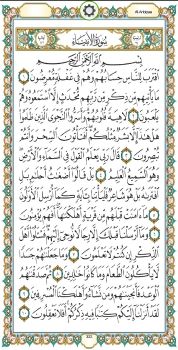 Al-Anbiyaa
سُورَةُ الْأَنبِيَاءِ
بِسْمِ اللَّهِ الرَّحْمَٰنِ الرَّحِيمِ
اقْتَرَبَ لِلنَّاسِ حِسَابُهُمْ وَهُمْ فِي غَفْلَةٍ مُّعْرِضُونَ ١
مَا يَأْتِيهِم مِّن ذِكْرٍ مِّن رَّبِّهِم مُّحْدَثٍ إِلَّا اسْتَمَعُوهُ وَهُمْ
يَلْعَبُونَ ٢ لَاهِيَةً قُلُوبُهُمْ وَأَسَرُّوا النَّجْوَى الَّذِينَ ظَلَمُوا
هَلْ هَٰذَا إِلَّا بَشَرٌ مِّثْلُكُمْ أَفَتَأْتُونَ السِّحْرَ وَأَنتُمْ
تُبْصِرُونَ ٣ قَالَ رَبِّي يَعْلَمُ الْقَوْلَ فِي السَّمَاءِ وَالْأَرْضِ
وَهُوَ السَّمِيعُ الْعَلِيمُ ٤ بَلْ قَالُوا أَضْغَاثُ أَحْلَامٍ بَلِ
افْتَرَاهُ بَلْ هُوَ شَاعِرٌ فَلْيَأْتِنَا بِآيَةٍ كَمَا أُرْسِلَ الْأَوَّلُونَ
٥ مَا آمَنَتْ قَبْلَهُم مِّن قَرْيَةٍ أَهْلَكْنَاهَا أَفَهُمْ يُؤْمِنُونَ
٦ وَمَا أَرْسَلْنَا قَبْلَكَ إِلَّا رِجَالًا نُّوحِي إِلَيْهِمْ فَاسْأَلُوا أَهْلَ
الذِّكْرِ إِن كُنتُمْ لَا تَعْلَمُونَ ٧ وَمَا جَعَلْنَاهُمْ جَسَدًا
لَّا يَأْكُلُونَ الطَّعَامَ وَمَا كَانُوا خَالِدِينَ ٨ ثُمَّ صَدَقْنَاهُمُ
الْوَعْدَ فَأَنجَيْنَاهُمْ وَمَن نَّشَاءُ وَأَهْلَكْنَا الْمُسْرِفِينَ ٩
لَقَدْ أَنزَلْنَا إِلَيْكُمْ كِتَابًا فِيهِ ذِكْرُكُمْ أَفَلَا تَعْقِلُونَ ١٠
322